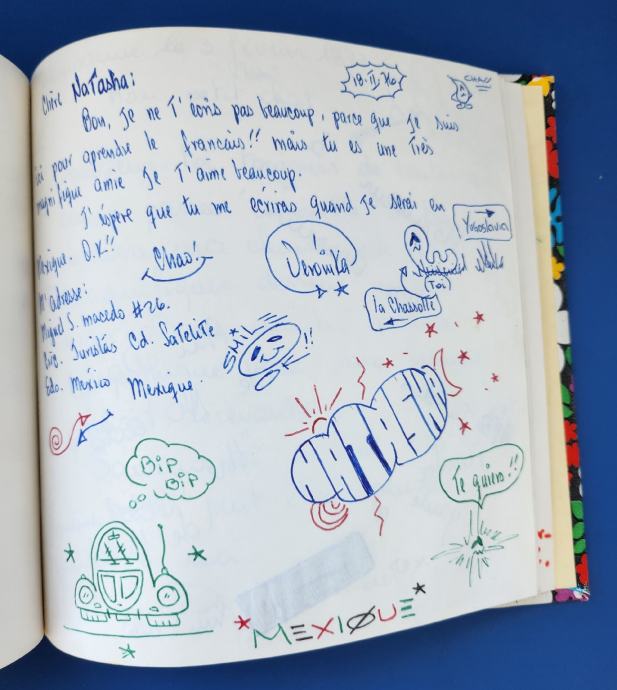 Chère Natasha:
18.II.76
CHAO
Bon, Je ne T'écris pas beaucoup, parce que Je suis
ici pour aprendre le français!! mais tu es une Très
magnifique amie Je T'aime beaucoup.
J'éspère que tu me écriras quand Je serai en
Mexique. O.K!!
Chao!
Veronika
Yugoslavia
Toi
la Chassotte
M'adresse:
Miguel S. macedo #26.
Circ. Juristas Cd. Satelite
Edo. Mexico Mexique.
SMIL
!!
NATASHA
BiP
BiP
Te quiero!!
MEXIQUE